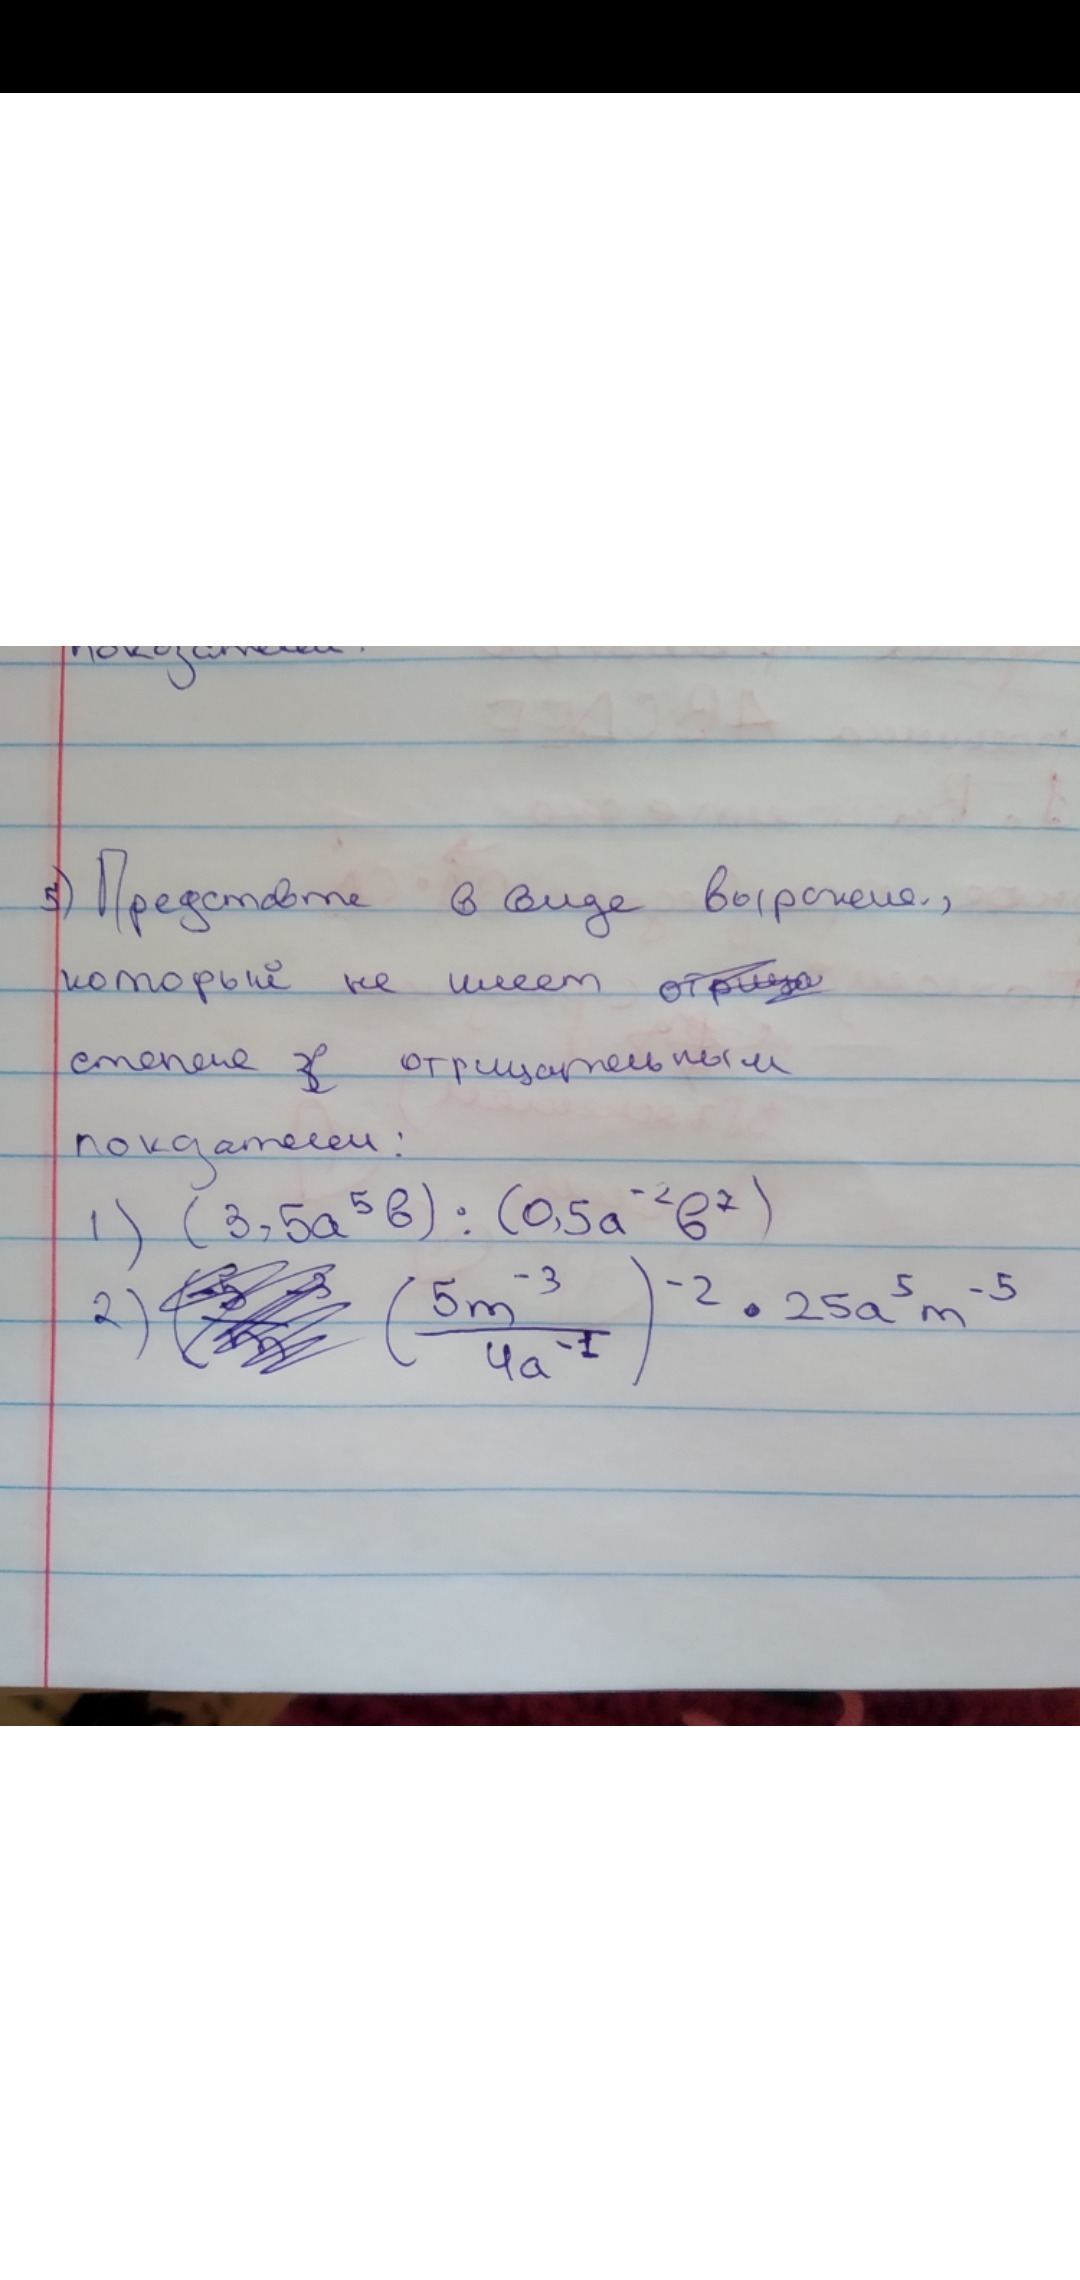 показатели.
3) Представте в виде выражение,
который не имеет
степене с отрицательным
покозателем:
1) (3,5a⁵b) : (0,5a⁻²b⁷)
2) (5m⁻³/4a⁻¹)⁻² • 25a⁵m⁻⁵